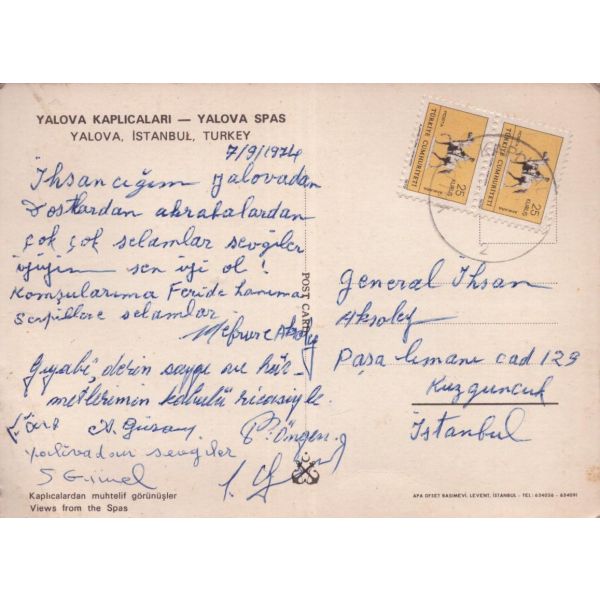 YALOVA KAPLICALARI — YALOVA SPAS
YALOVA, İSTANBUL, TURKEY
7/9/1974
İhsancığım Yalovadan
Dostlardan akrabalardan
çok çok selamlar sevgiler
iyiyim sen iyi ol!
Komşularıma Feride hanıma
selamlar
Mefrure Aksoley
Gıyabi derin saygı ve hür-
metlerimin kabulü ricasiyle.
sevgiler
Kaplıcalardan muhtelif görünüşler
Views from the Spas
POST CARD
POSTA
TÜRKİYE CUMHURİYETİ
25
KURUŞ
POSTA
TÜRKİYE CUMHURİYETİ
25
KURUŞ
General İhsan
Aksoley
Paşa limanı cad 129
Kuzguncuk
İstanbul
APA OFSET BASIMEVİ, LEVENT, İSTANBUL - TEL: 634056 - 634091